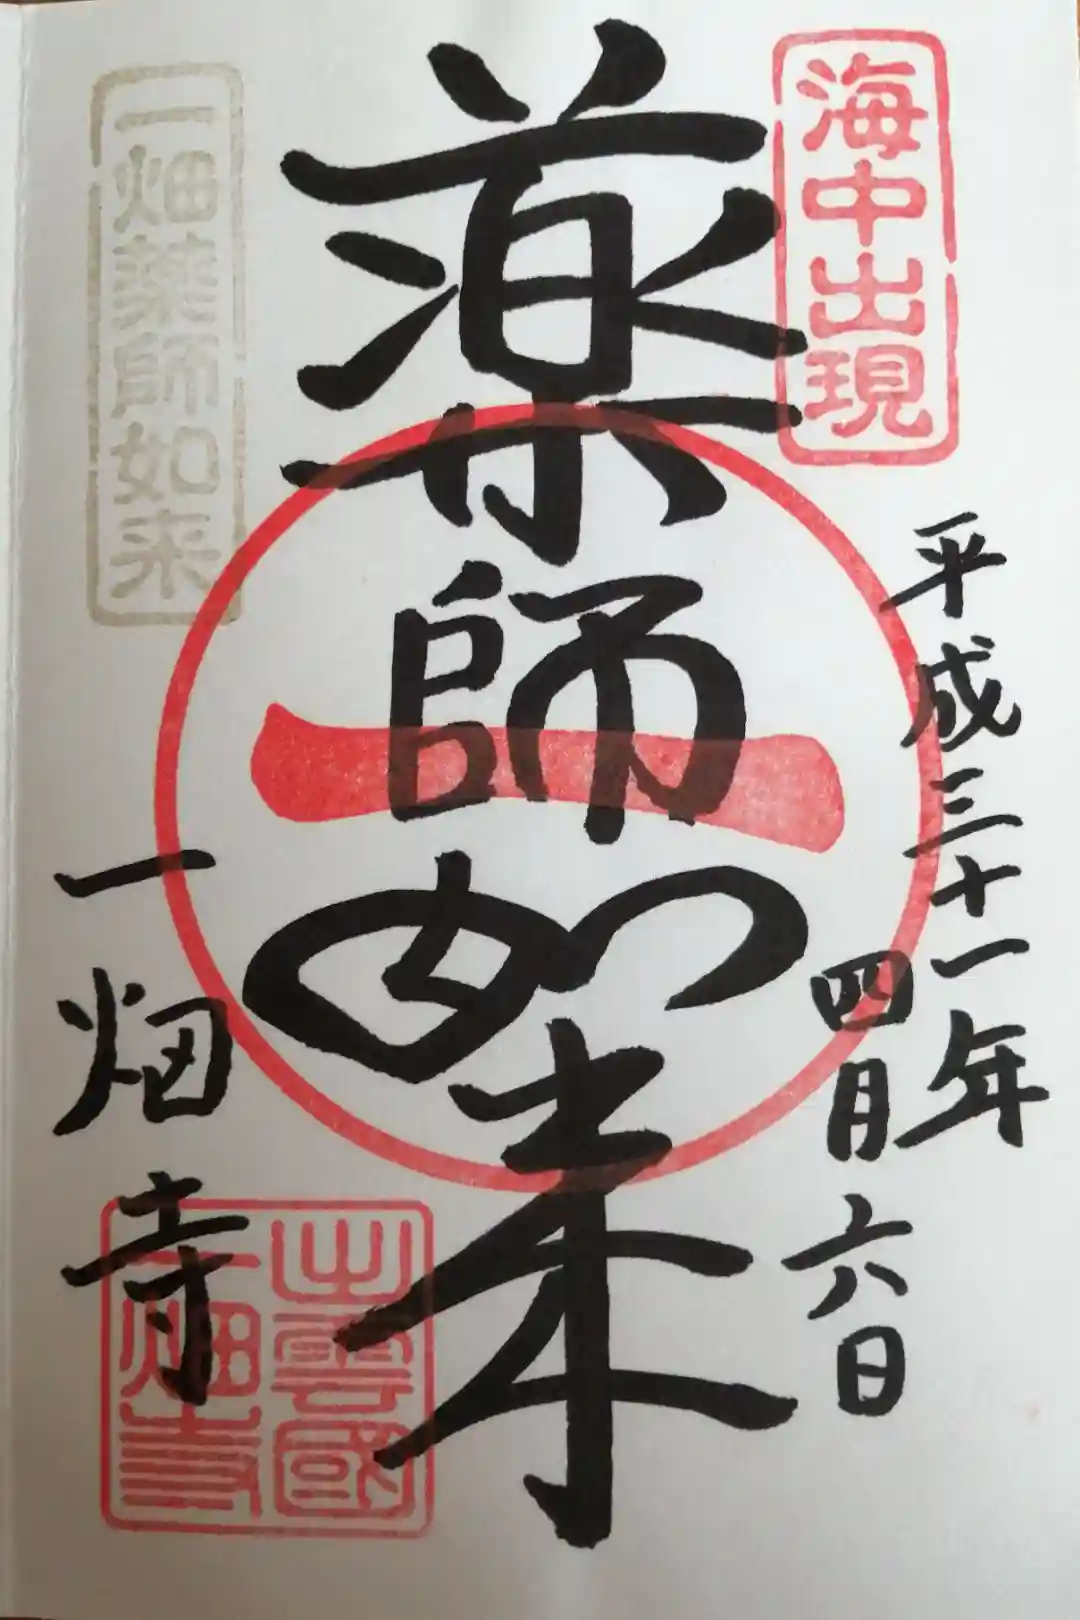 海中出現
平成三十一年
四月六日
藥師如来
一
一畑薬師如来
一畑寺
出雲國
一畑寺